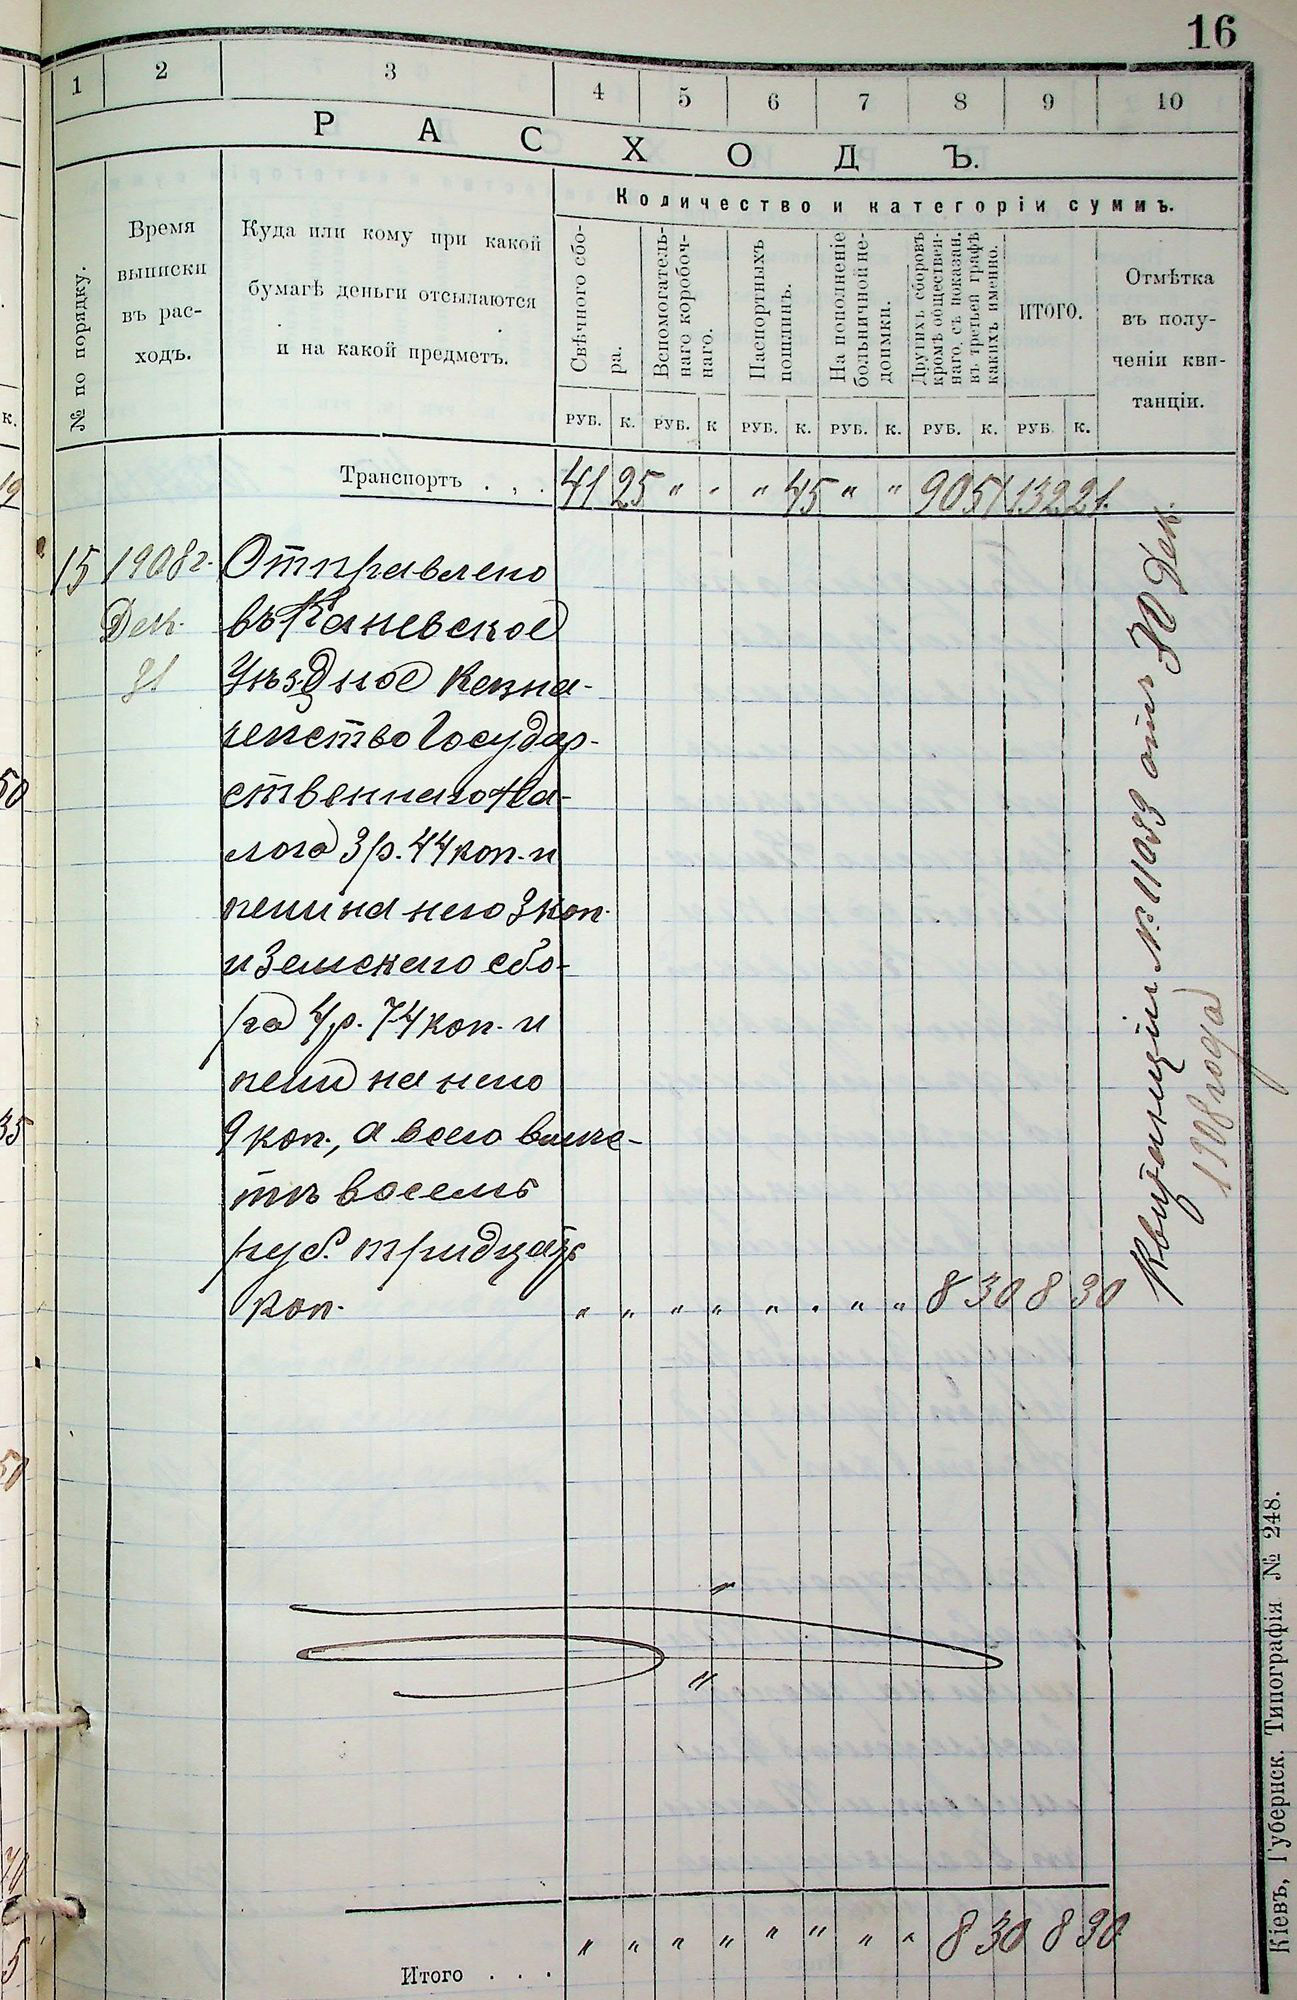 16
1 2 3 4 5 6 7 8 9 10
РАСХОДЪ.
№ по порядку.
Время
выписки
въ рас-
ходъ.
Куда или кому при какой
бумагѣ деньги отсылаются
и на какой предметъ.
Количество и категоріи суммъ.
Свѣчного сбо-
ра.
Вспомогатель-
наго коробоч-
наго.
Паспортныхъ
пошлинъ.
На пополненіе
больничной не-
доимки.
Другихъ сборовъ
кромѣ обществен-
наго, съ показан.
въ третьей графѣ
какихъ именно.
ИТОГО.
Отмѣтка
въ полу-
ченіи кви-
танціи.
РУБ. К. РУБ. К РУБ. К. РУБ. К. РУБ. К. РУБ. К.
Транспортъ . . . 41 25 " " " 45 " " 90 51 132 21.
15 1908 г. Отправлено
Дек. въ Каневское
31 Уѣздное Казна-
чейство Государ-
ственнаго На-
лога 3 р. 44 коп. и
пени на него 3 коп.
и Земскаго сбо-
ра 4 р. 74 коп. и
пени на него
9 коп., а всего вмѣс-
тѣ восемь
руб. тридцать
коп. " " " " " " " " 8 30 8 30
Квитанція № 11033 отъ 30 Дек.
1908 года
Итого . . . " " " " " " " " 8 30 8 30
Кіевъ, Губернск. Типографія № 248.